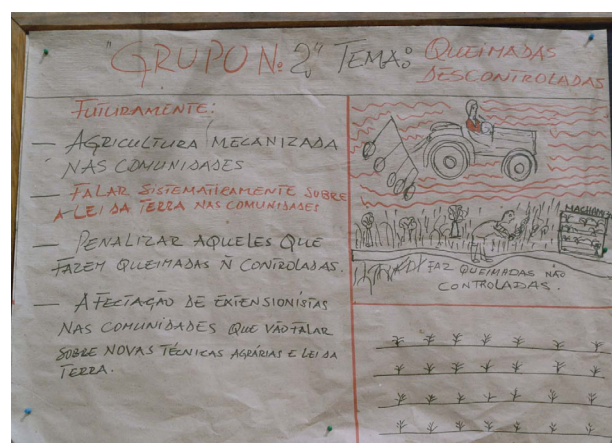 "GRUPO Nº 2" TEMA: QUEIMADAS
DESCONTROLADAS
FUTURAMENTE:
— AGRICULTURA MECANIZADA
NAS COMUNIDADES
— FALAR SISTEMATICAMENTE SOBRE
A LEI DA TERRA NAS COMUNIDADES
— PENALIZAR AQUELES QUE
FAZEM QUEIMADAS Ñ CONTROLADAS.
— AFECTAÇÃO DE EXTENSIONISTAS
NAS COMUNIDADES QUE VÃO FALAR
SOBRE NOVAS TÉCNICAS AGRÁRIAS E LEI DA
TERRA.
FAZ QUEIMADAS NÃO
CONTROLADAS.